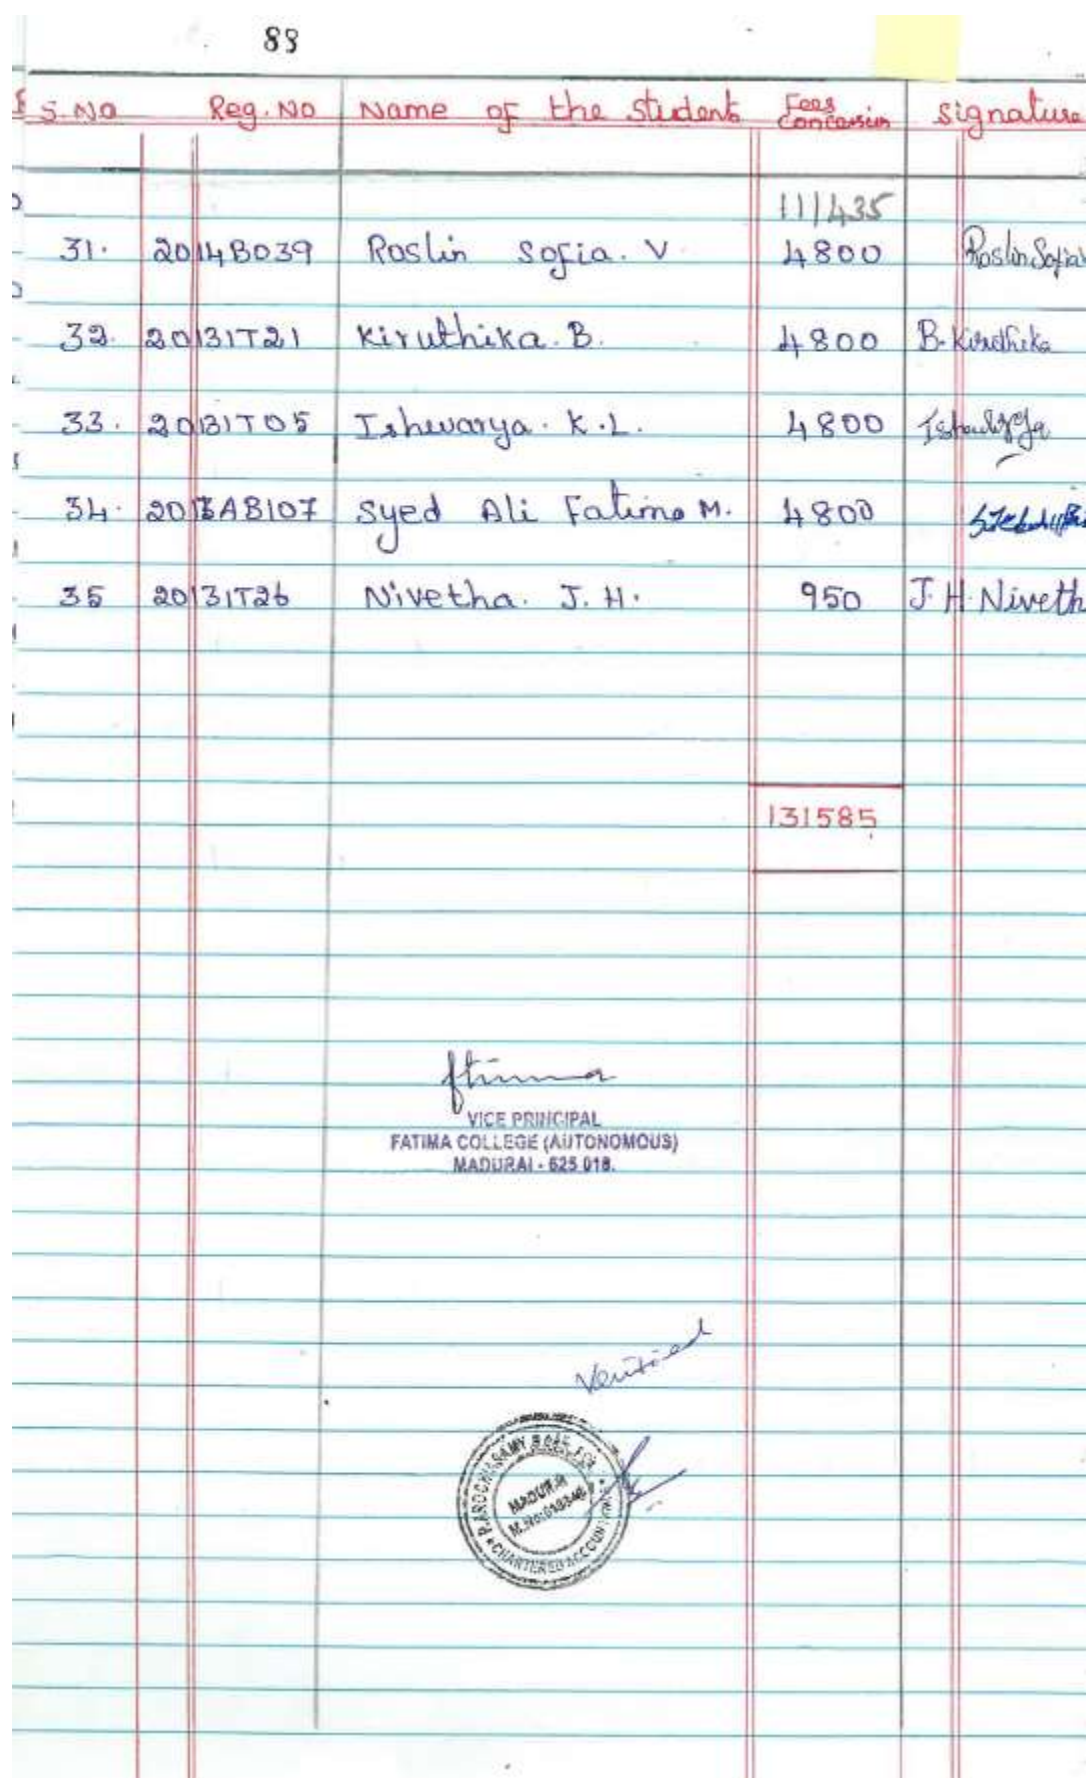 88
S.No Reg. No Name of the Student Fees Concession Signature
111435
31. 2014B039 Roslin Sofia. V 4800 Roslin Sofia
32. 20131T21 Kiruthika. B. 4800 B. Kiruthika
33. 20131T05 Ishwarya. K.L. 4800
34. 2013AB107 Syed Ali Fatima M. 4800
35 20131T26 Nivetha. J. H. 950 J. H. Niveth
131585
VICE PRINCIPAL
FATIMA COLLEGE (AUTONOMOUS)
MADURAI - 625 018.
Verified
MADURAI
M.No:
CHARTERED ACCOUNTANT